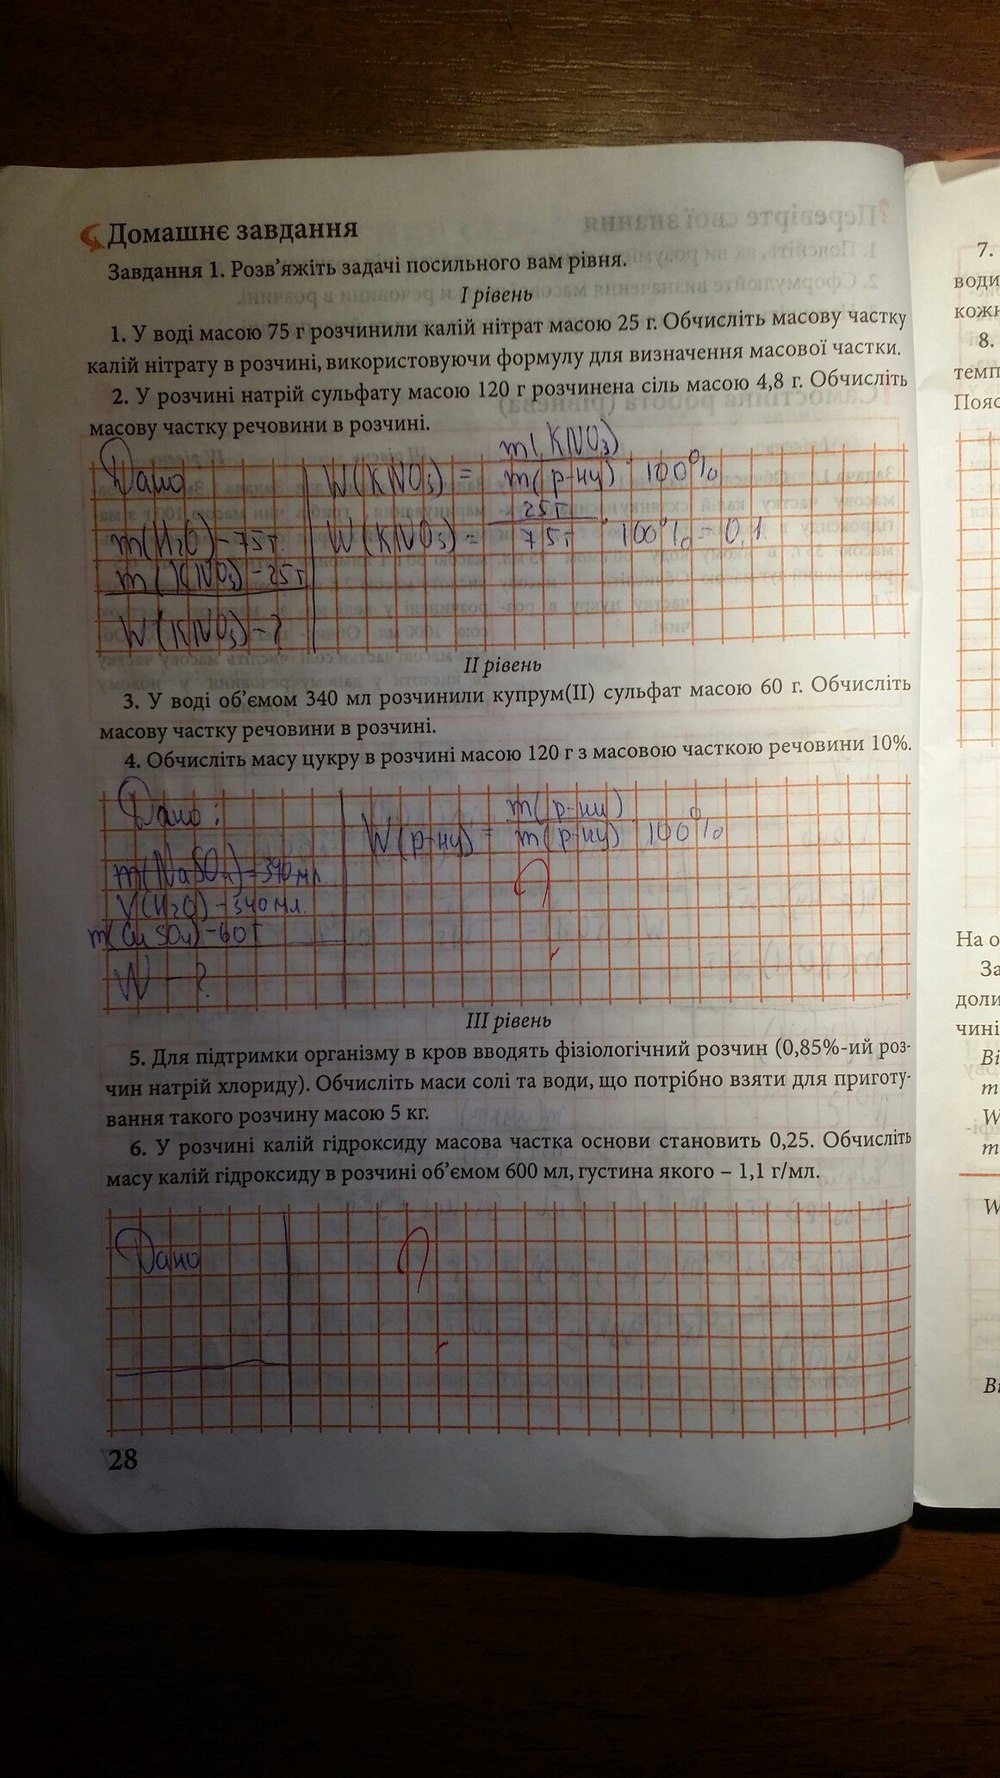 Домашнє завдання
Завдання 1. Розв'яжіть задачі посильного вам рівня.
І рівень
1. У воді масою 75 г розчинили калій нітрат масою 25 г. Обчисліть масову частку
калій нітрату в розчині, використовуючи формулу для визначення масової частки.
2. У розчині натрій сульфату масою 120 г розчинена сіль масою 4,8 г. Обчисліть
масову частку речовини в розчині.
Дано
m(H2O) - 75г
m(KNO3) - 25г
W(KNO3) - ?
W(KNO3) = m(KNO3) / m(р-ну) · 100%
W(KNO3) = 25г / 75г · 100% = 0,1
ІІ рівень
3. У воді об'ємом 340 мл розчинили купрум(ІІ) сульфат масою 60 г. Обчисліть
масову частку речовини в розчині.
4. Обчисліть масу цукру в розчині масою 120 г з масовою часткою речовини 10%.
Дано:
m(NaSO4) = 340 мл
V(H2O) - 340 мл
m(CuSO4) - 60г
W - ?
W(р-ну) = m(р-ну) / m(р-ну) · 100%
ІІІ рівень
5. Для підтримки організму в кров вводять фізіологічний розчин (0,85%-ий роз-
чин натрій хлориду). Обчисліть маси солі та води, що потрібно взяти для приготу-
вання такого розчину масою 5 кг.
6. У розчині калій гідроксиду масова частка основи становить 0,25. Обчисліть
масу калій гідроксиду в розчині об'ємом 600 мл, густина якого – 1,1 г/мл.
Дано
28
7.
води
кожн
8.
темп
Пояс
На о
За
доли
чині
Ві
m
W
m
W
Ві